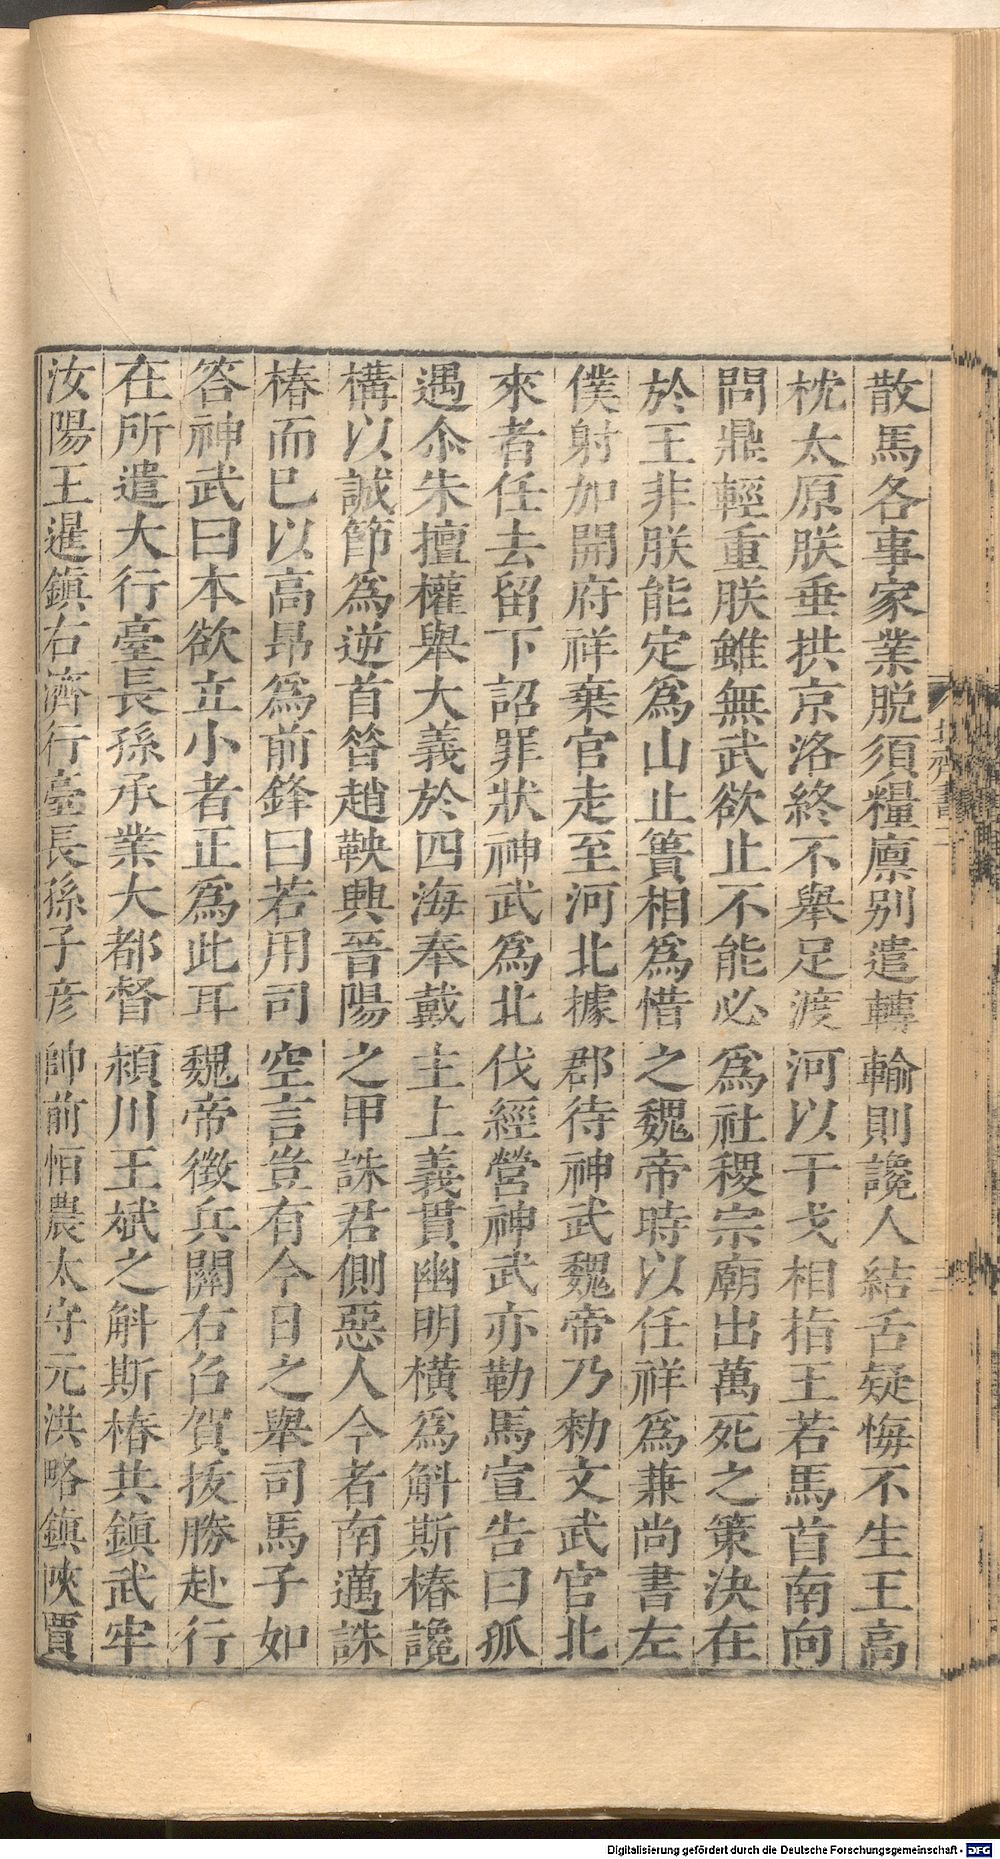 散馬各事家業脱須糧廪别遣轉輸則讒人結舌疑悔不生王高
枕太原朕垂拱京洛終不舉足渡河以干戈相指王若馬首南向
問鼎輕重朕雖無武欲止不能必為社稷宗廟出萬死之策決在
於王非朕能定為山止簣相為惜之魏帝時以任祥為兼尚書左
僕射加開府祥棄官走至河北據郡待神武魏帝乃勑文武官北
來者任去留下詔罪狀神武為北伐經營神武亦勒馬宣告曰孤
遇尒朱擅權舉大義於四海奉戴主上義貫幽明橫為斛斯椿讒
構以誠節為逆首昝趙鞅興晉陽之甲誅君側惡人今者南邁誅
椿而已以高昂為前鋒曰若用司空言豈有今日之舉司馬子如
答神武曰本欲立小者正為此耳魏帝徴兵關右召賀拔勝赴行
在所遣大行臺長孫承業大都督頴川王斌之斛斯椿共鎮武牢
汝陽王暹鎮右濟行臺長孫子彦帥前恒農太守元洪略鎮陜賈
北齊書二
Digitalisierung gefördert durch die Deutsche Forschungsgemeinschaft - DFG